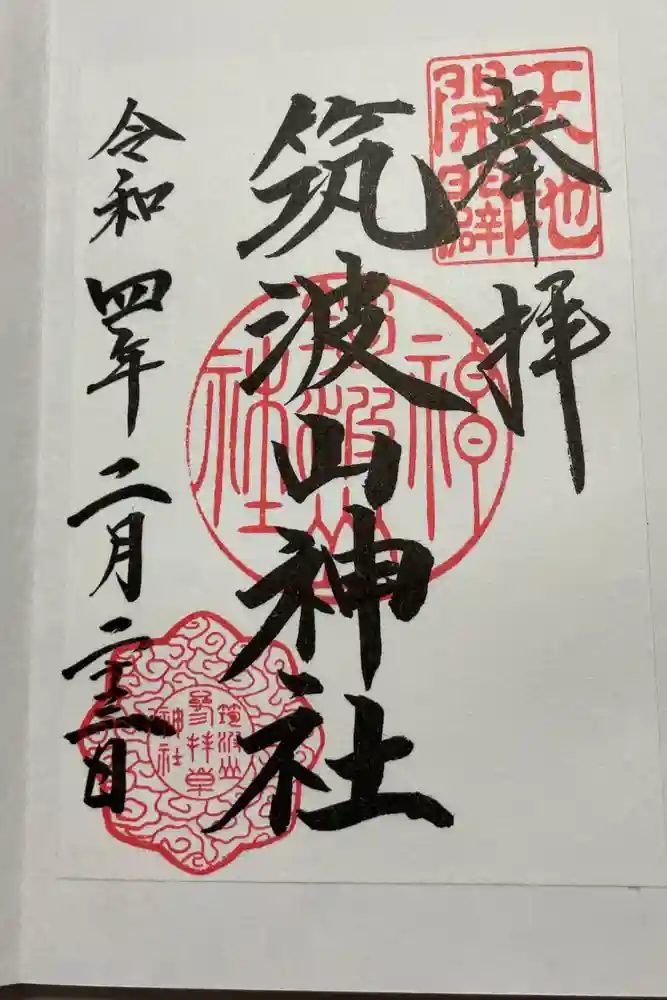 天地
開闢
奉拝
筑波山神社
筑波山
神社
令和四年二月二十三日
筑波山
神社